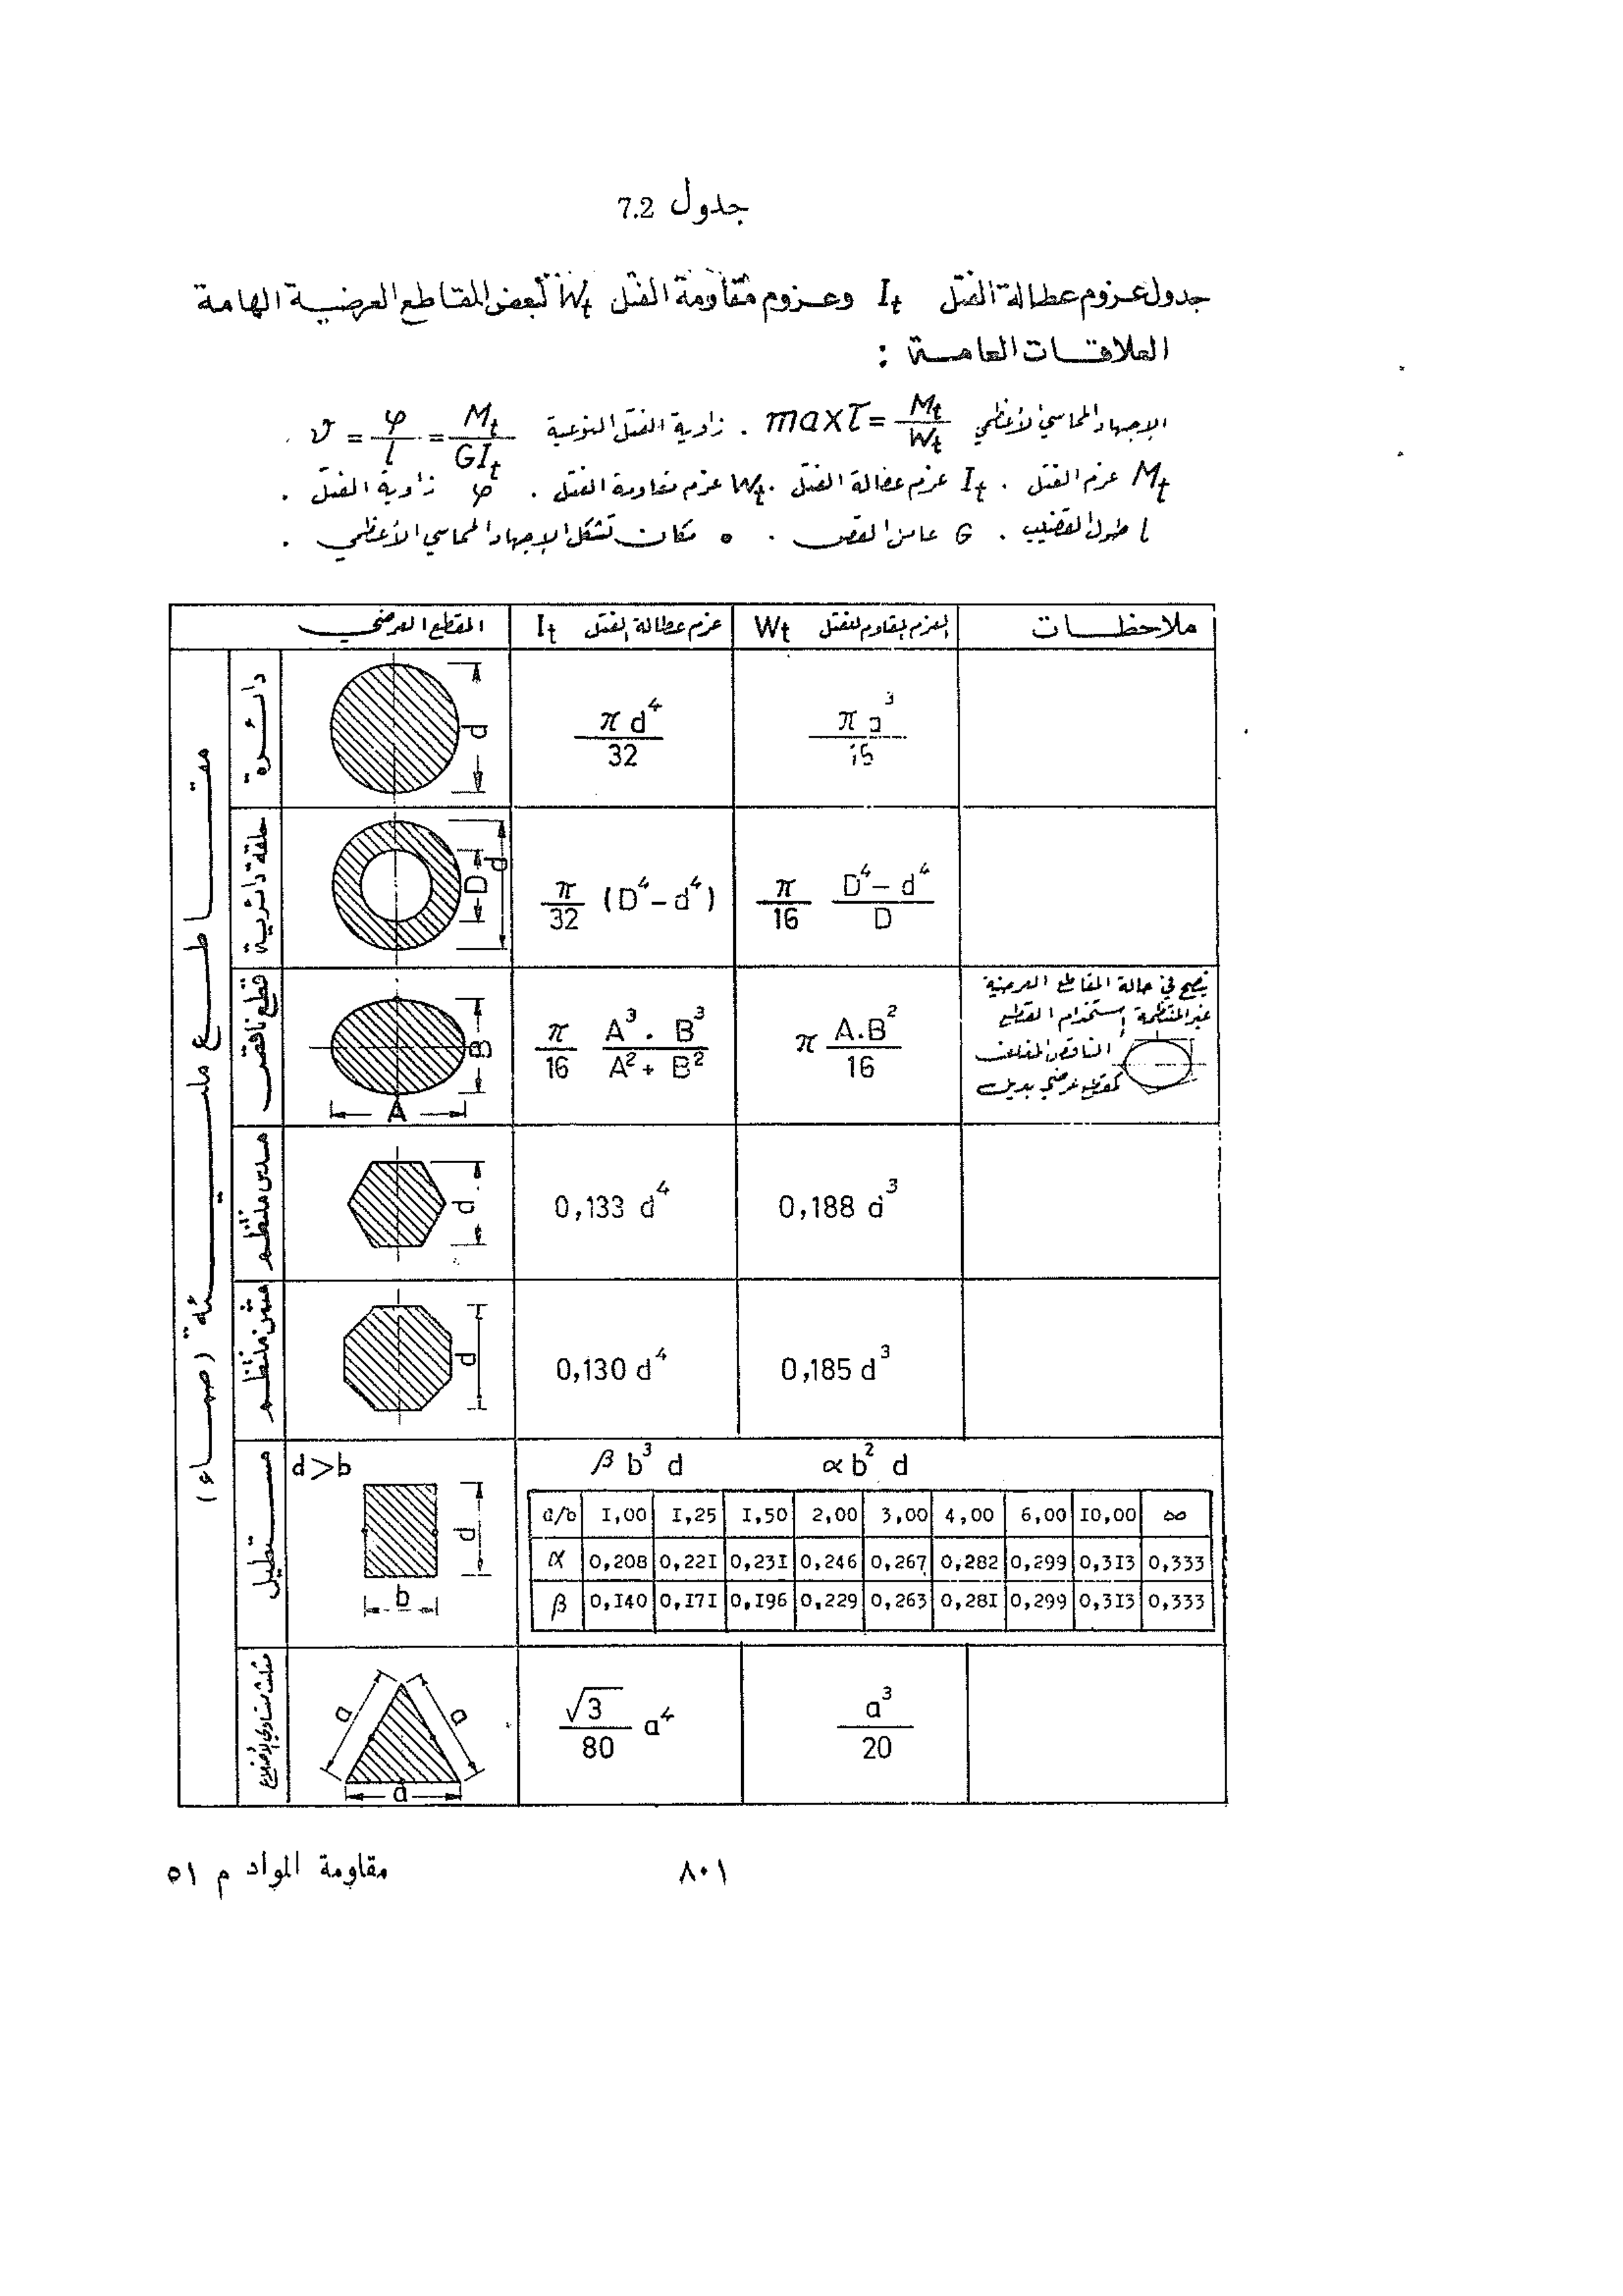 جدول 7.2
جدول عزوم عطالة الفتل It وعزوم مقاومة الفتل Wt لبعض المقاطع العرضية الهامة
العلاقات العامة :
الإجهاد المماسي الأعظمي maxτ = Mt/Wt . زاوية الفتل النوعية ϑ = φ/l = Mt/GIt .
Mt عزم الفتل . It عزم عطالة الفتل . Wt عزم مقاومة الفتل . φ زاوية الفتل .
l طول القضيب . G عامل القص . o مكان تشكل الإجهاد المماسي الأعظمي .
المقطع العرضي
عزم عطالة الفتل It
العزم المقاوم للفتل Wt
ملاحظات
مقاطع مليئة (صماء)
دائرة
d
π d⁴ / 32
π d³ / 16
حلقة دائرية
D
d
π/32 (D⁴ – d⁴)
π/16 (D⁴ – d⁴)/D
قطع ناقص
B
A
π/16 A³ . B³ / A² + B²
π A.B² / 16
ينصح في حالة المقاطع العرضية
غير المنتظمة إستخدام القطع
الناقص المغلف
كمقطع عرضي بديل
مسدس منتظم
d
0,133 d⁴
0,188 d³
مثمن منتظم
d
0,130 d⁴
0,185 d³
مستطيل
d>b
d
b
β b³ d
α b² d
d/b 1,00 1,25 1,50 2,00 3,00 4,00 6,00 10,00 ∞
α 0,208 0,221 0,231 0,246 0,267 0,282 0,299 0,313 0,333
β 0,140 0,171 0,196 0,229 0,263 0,281 0,299 0,313 0,333
مثلث متساوي الأضلاع
a
a
a
√3/80 a⁴
a³/20
٨٠١
مقاومة المواد م ٥١